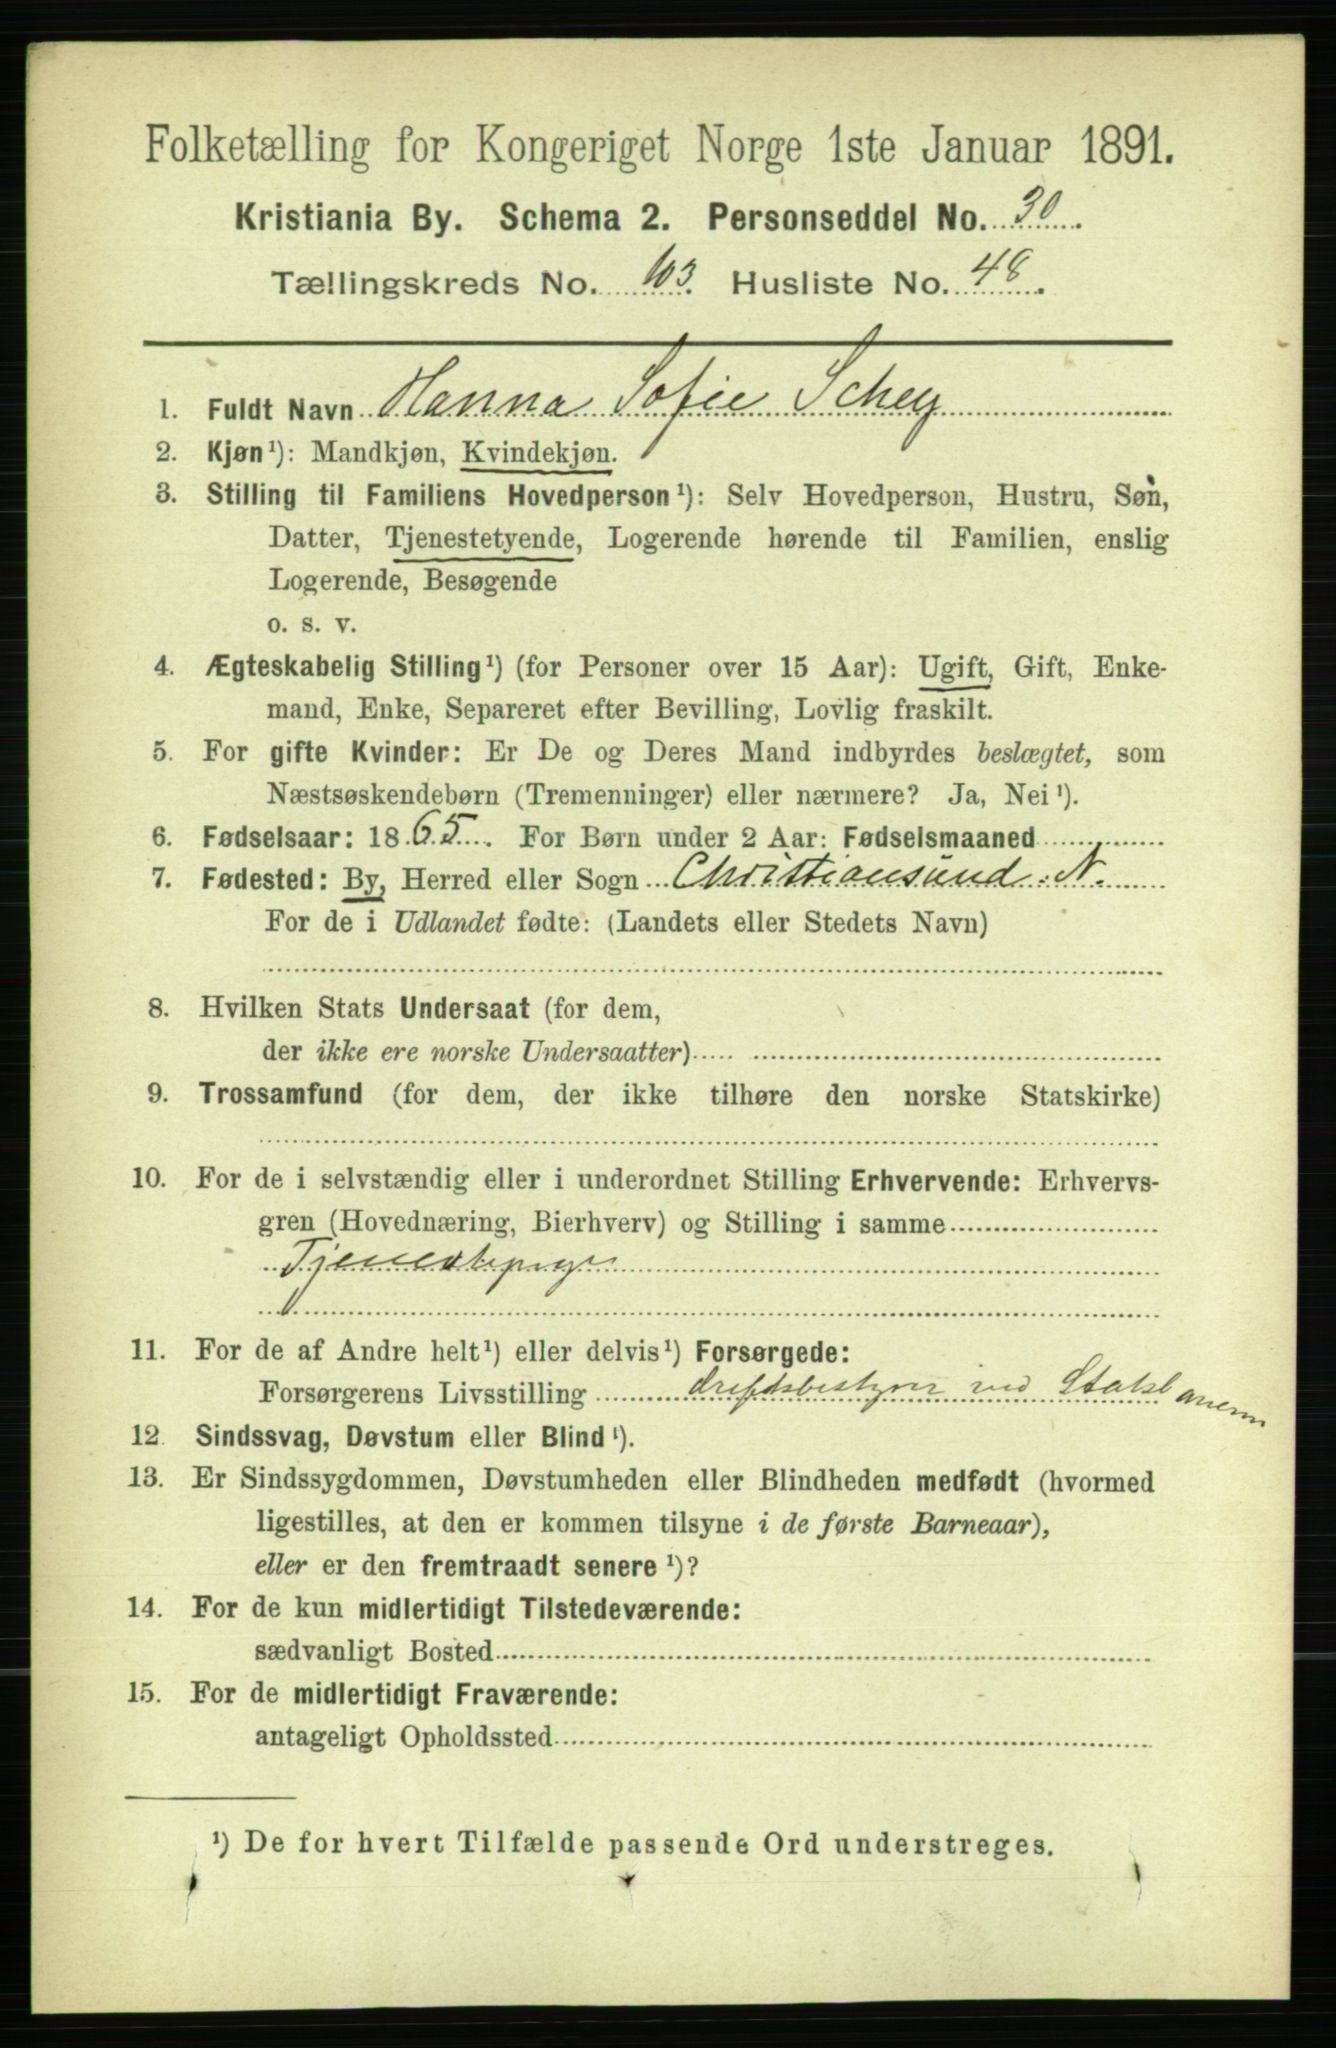 Folketælling for Kongeriget Norge 1ste Januar 1891.
Kristiania By. Schema 2. Personseddel No. 30.
Tællingskreds No. 103. Husliste No. 48.
1. Fuldt Navn Hanna Sofie Schey
2. Kjøn¹): Mandkjøn, Kvindekjøn.
3. Stilling til Familiens Hovedperson¹): Selv Hovedperson, Hustru, Søn,
Datter, Tjenestetyende, Logerende hørende til Familien, enslig
Logerende, Besøgende
o. s. v.
4. Ægteskabelig Stilling¹) (for Personer over 15 Aar): Ugift, Gift, Enke-
mand, Enke, Separeret efter Bevilling, Lovlig fraskilt.
5. For gifte Kvinder: Er De og Deres Mand indbyrdes beslægtet, som
Næstsøskendebørn (Tremenninger) eller nærmere? Ja, Nei¹).
6. Fødselsaar: 1865. For Børn under 2 Aar: Fødselsmaaned
7. Fødested: By, Herred eller Sogn Christiansund. N.
For de i Udlandet fødte: (Landets eller Stedets Navn)
8. Hvilken Stats Undersaat (for dem,
der ikke ere norske Undersaatter)
9. Trossamfund (for dem, der ikke tilhøre den norske Statskirke)
10. For de i selvstændig eller i underordnet Stilling Erhvervende: Erhvervs-
gren (Hovednæring, Bierhverv) og Stilling i samme
Tjenestepige
11. For de af Andre helt¹) eller delvis¹) Forsørgede:
Forsørgerens Livsstilling driftsbestyrer ved Statsbanerne
12. Sindssvag, Døvstum eller Blind¹).
13. Er Sindssygdommen, Døvstumheden eller Blindheden medfødt (hvormed
ligestilles, at den er kommen tilsyne i de første Barneaar),
eller er den fremtraadt senere¹)?
14. For de kun midlertidigt Tilstedeværende:
sædvanligt Bosted
15. For de midlertidigt Fraværende:
antageligt Opholdssted
¹) De for hvert Tilfælde passende Ord understreges.